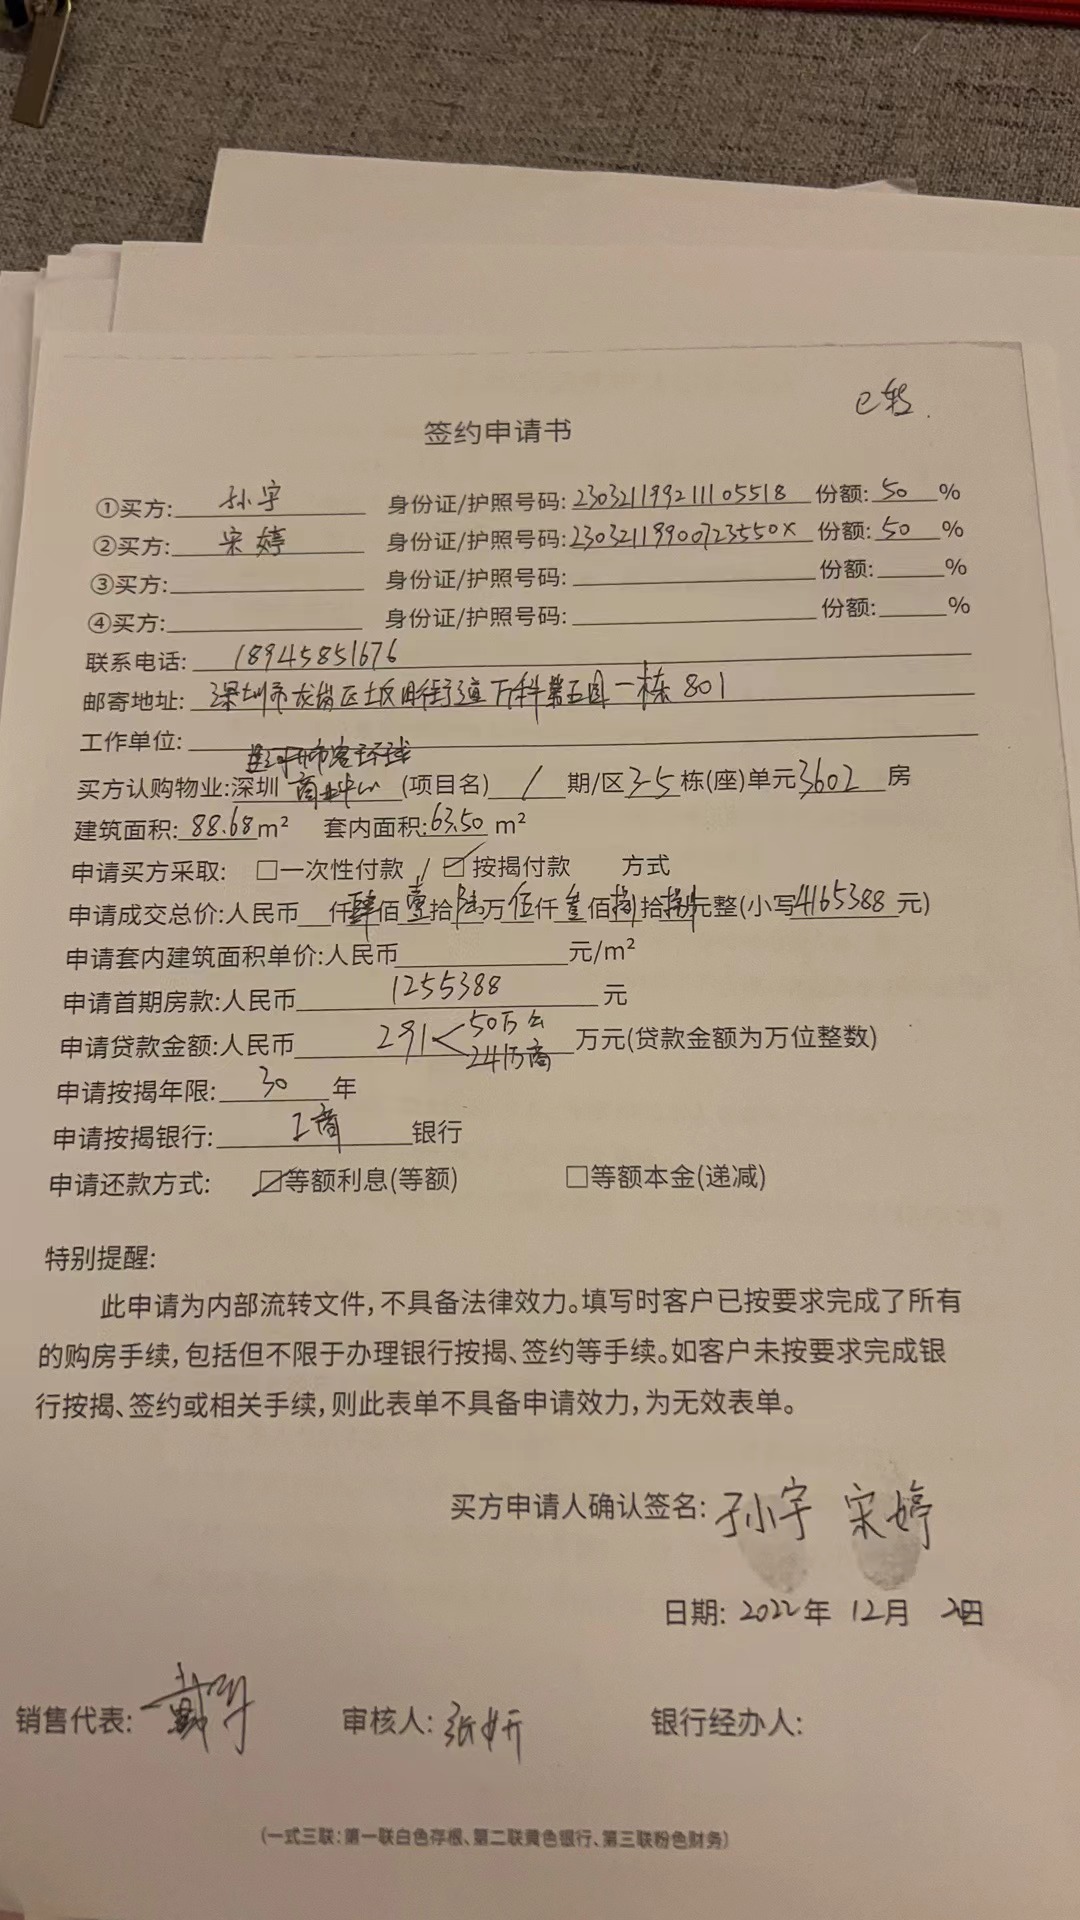 e转.
签约申请书
①买方: 孙宇 身份证/护照号码: 230321199211105518 份额: 50 %
②买方: 宋婷 身份证/护照号码: 23032119900723550X 份额: 50 %
③买方: 身份证/护照号码: 份额: %
④买方: 身份证/护照号码: 份额: %
联系电话: 18945851676
邮寄地址: 深圳市龙岗区坂田街道万科第五园一栋801
工作单位:
环球
买方认购物业:深圳 商业中心 (项目名) / 期/区 3-5 栋(座)单元 3602 房
建筑面积: 88.68 m² 套内面积: 63.50 m²
申请买方采取: □一次性付款 / ☑按揭付款 方式
申请成交总价:人民币 仟肆佰壹拾陆万伍仟叁佰捌拾捌元整(小写 4165388 元)
申请套内建筑面积单价:人民币 元/m²
申请首期房款:人民币 1255388 元
申请贷款金额:人民币 291 < 50万公 241万商 万元(贷款金额为万位整数)
申请按揭年限: 30 年
申请按揭银行: 工商 银行
申请还款方式: ☑等额利息(等额) □等额本金(递减)
特别提醒:
此申请为内部流转文件,不具备法律效力。填写时客户已按要求完成了所有
的购房手续,包括但不限于办理银行按揭、签约等手续。如客户未按要求完成银
行按揭、签约或相关手续,则此表单不具备申请效力,为无效表单。
买方申请人确认签名: 孙宇 宋婷
日期: 2022年 12月 日
销售代表: 戴
审核人: 张妍
银行经办人:
(一式三联:第一联白色存根、第二联黄色银行、第三联粉色财务)